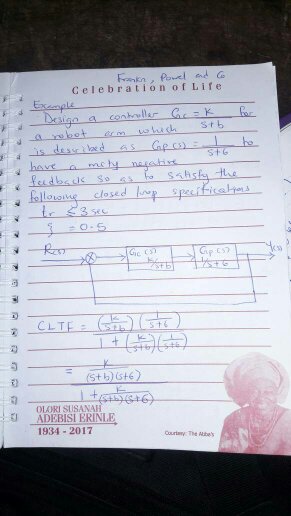 Frankn, Powel ad G
Celebration of Life
Example
Design a controller Gc = K/(s+b) for
a robot arm which
is described as Gp(s) = 1/(s+6) to
have a unity negative
feedback so as to satisfy the
following closed loop specifications
tr ≤ 3 sec
ξ = 0.5
R(s) Gc(s) Gp(s) Y(s)
K/s+b 1/s+6
CLTF = (K/(s+b)) (1/(s+6))
1 + (K/(s+b)) (1/(s+6))
= K/((s+b)(s+6))
1 + K/((s+b)(s+6))
OLORI SUSANAH
ADEBISI ERINLE
1934 - 2017
Courtesy: The Abba's